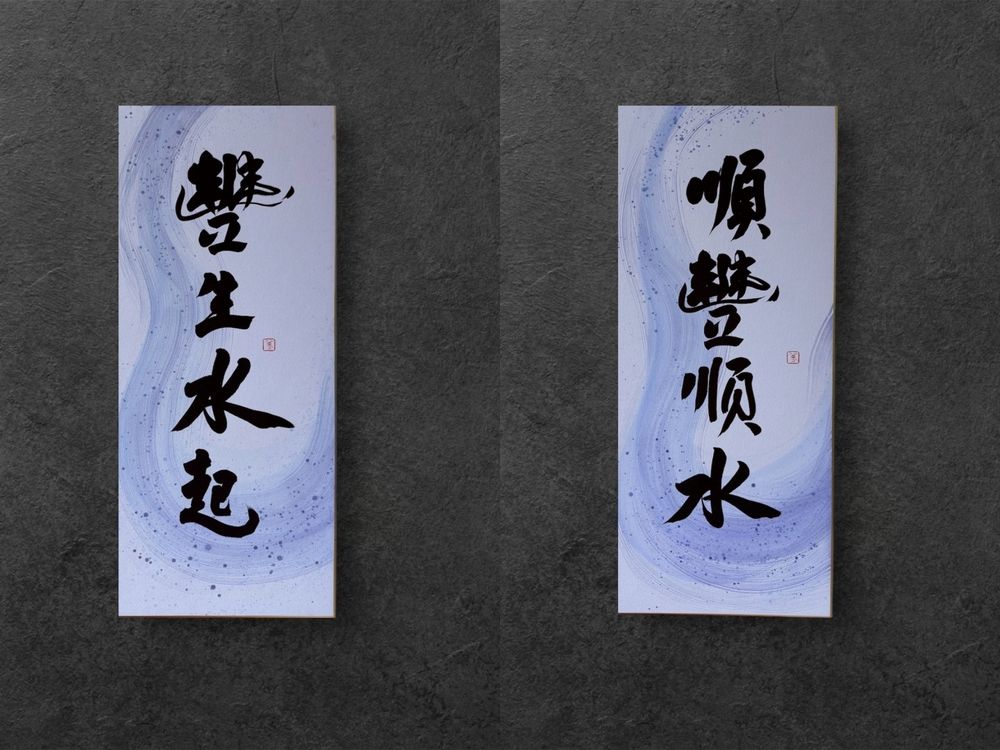 豐生水起
順豐順水